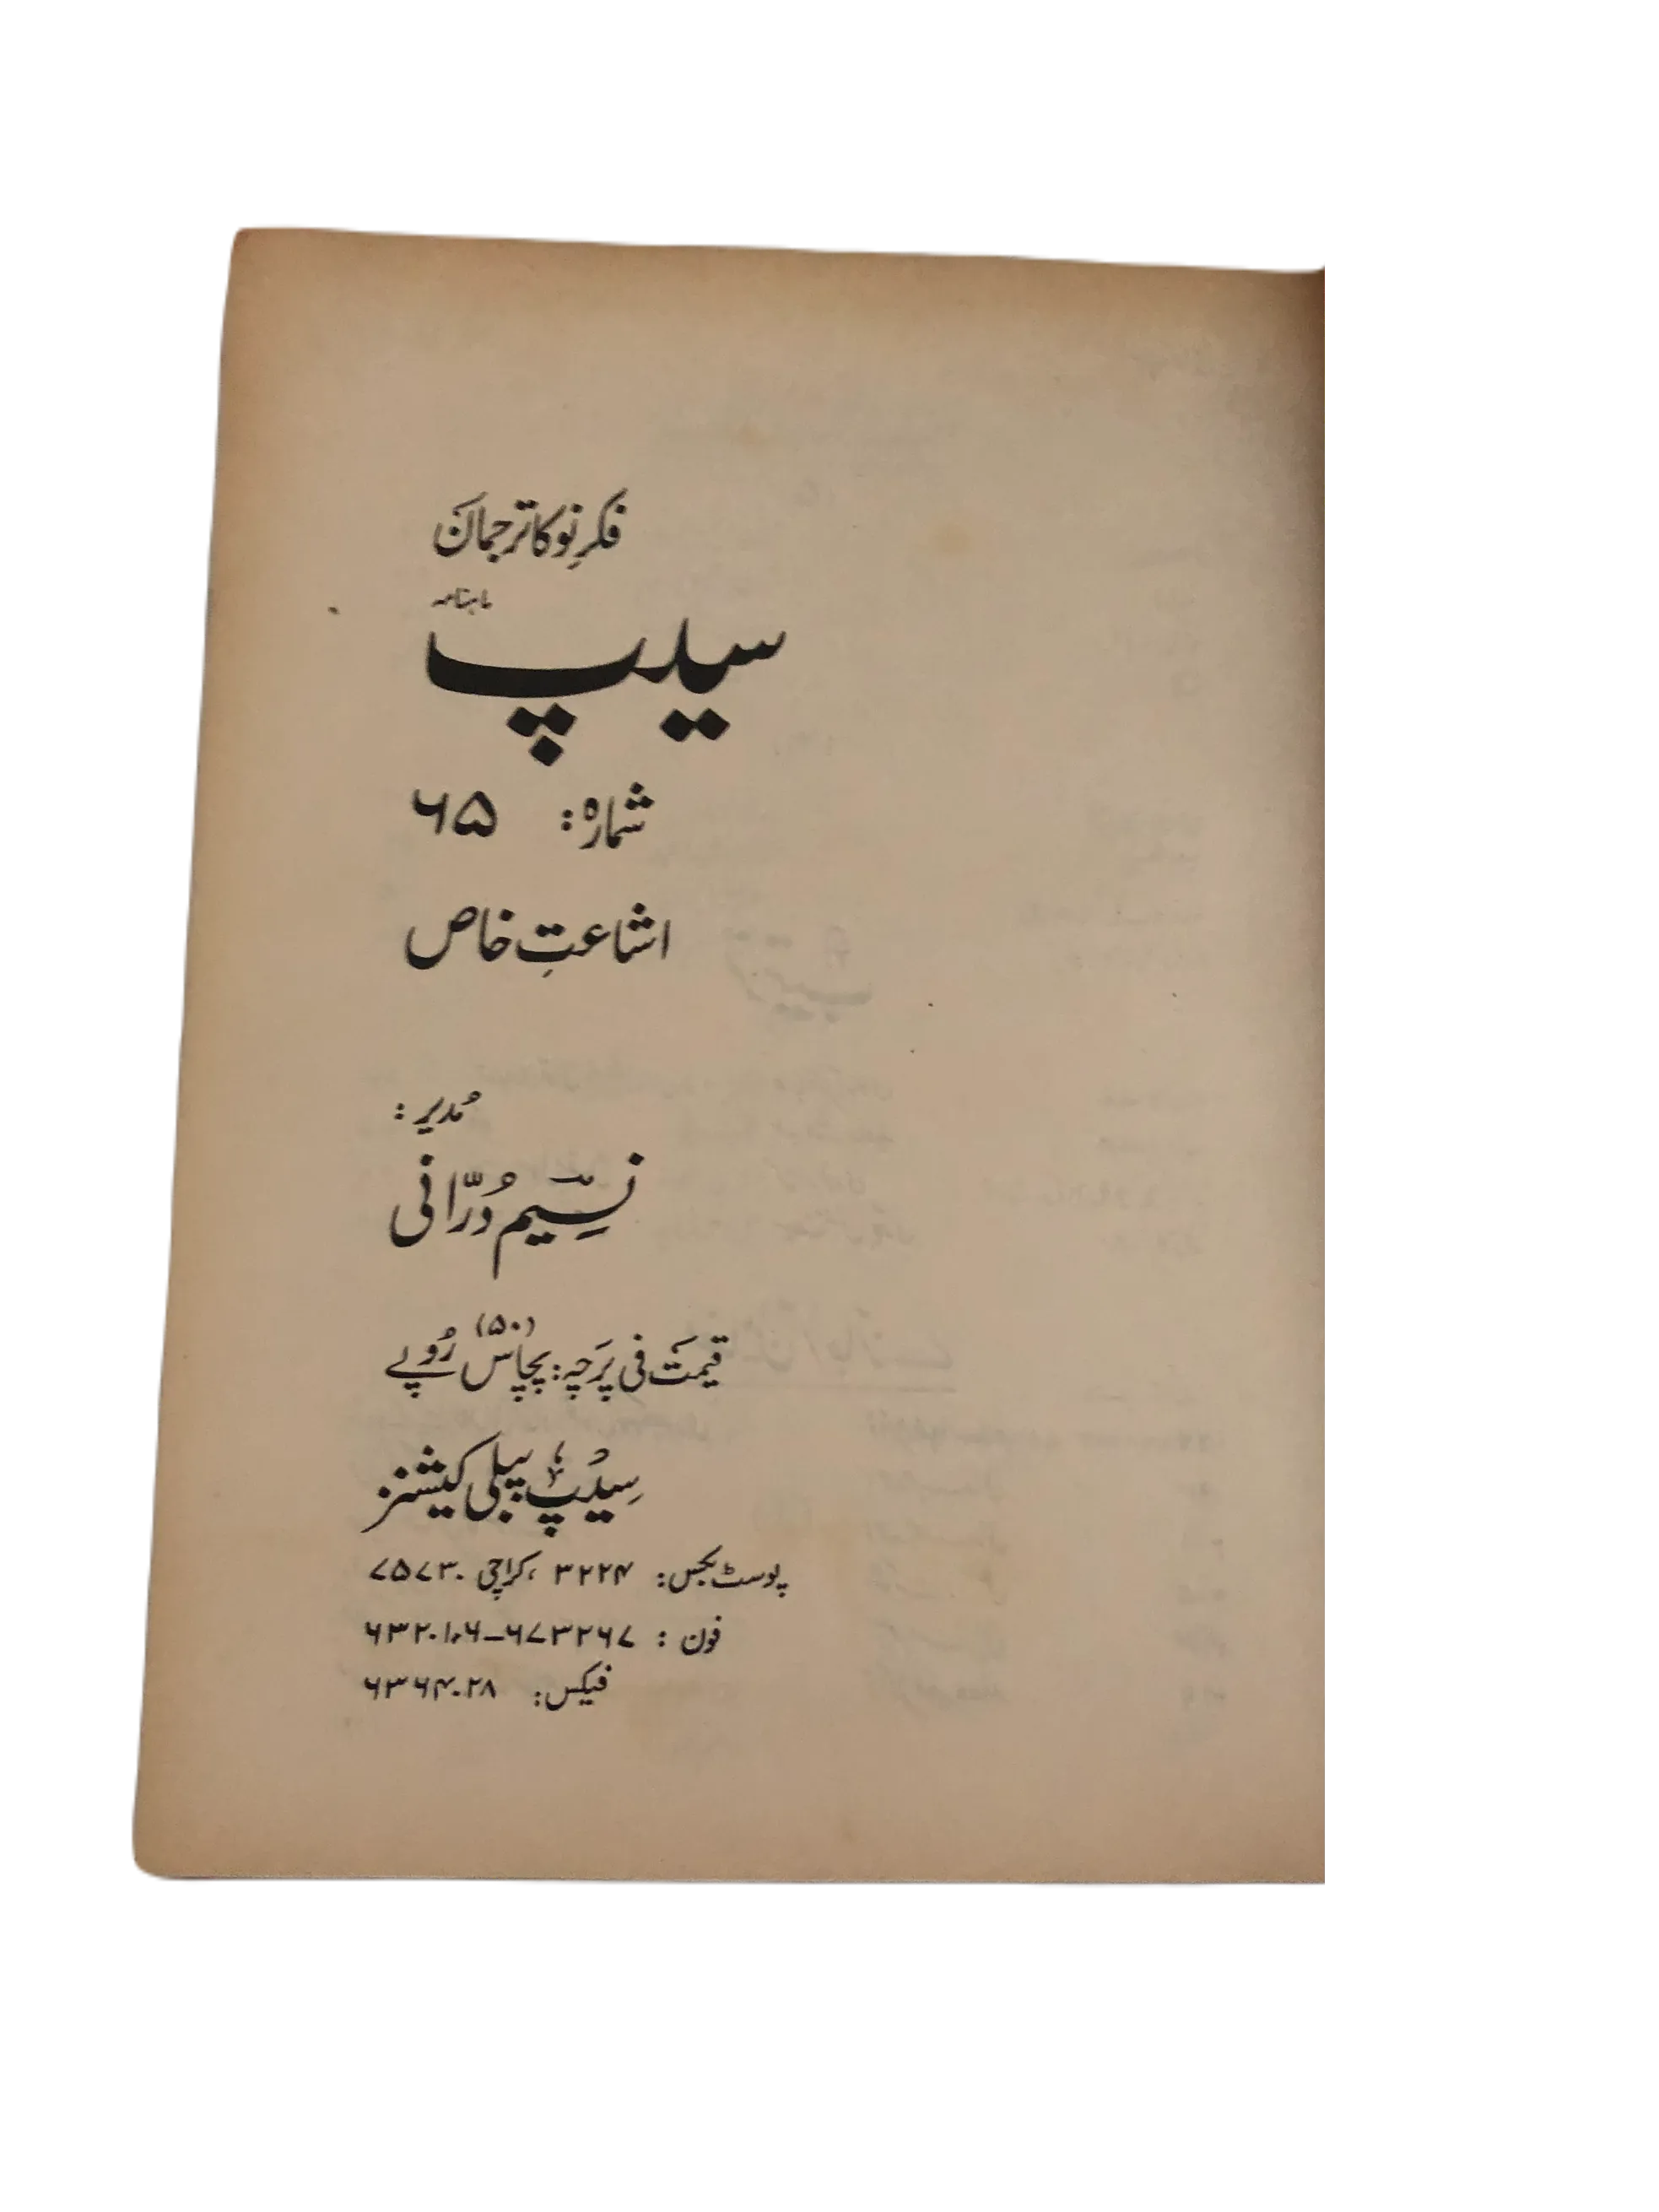 فکرِ نَو کا ترجمانَ
ماہنامہ
سیپ
شمارہ: ۶۵
اشاعتِ خاص
مُدیر:
نسِیم دُرّانی
قیمتَ فی پَرچہ: پچاسَ (۵۰) رُوپے
سِیپ پبلی کیشنز
پوسٹ بکس: ۳۲۲۴ ،کراچی ۷۵۷۳۰
فون : ۶۳۲۰۱۰۶-۶۷۳۲۶۷
فیکس: ۶۳۶۴۰۲۸